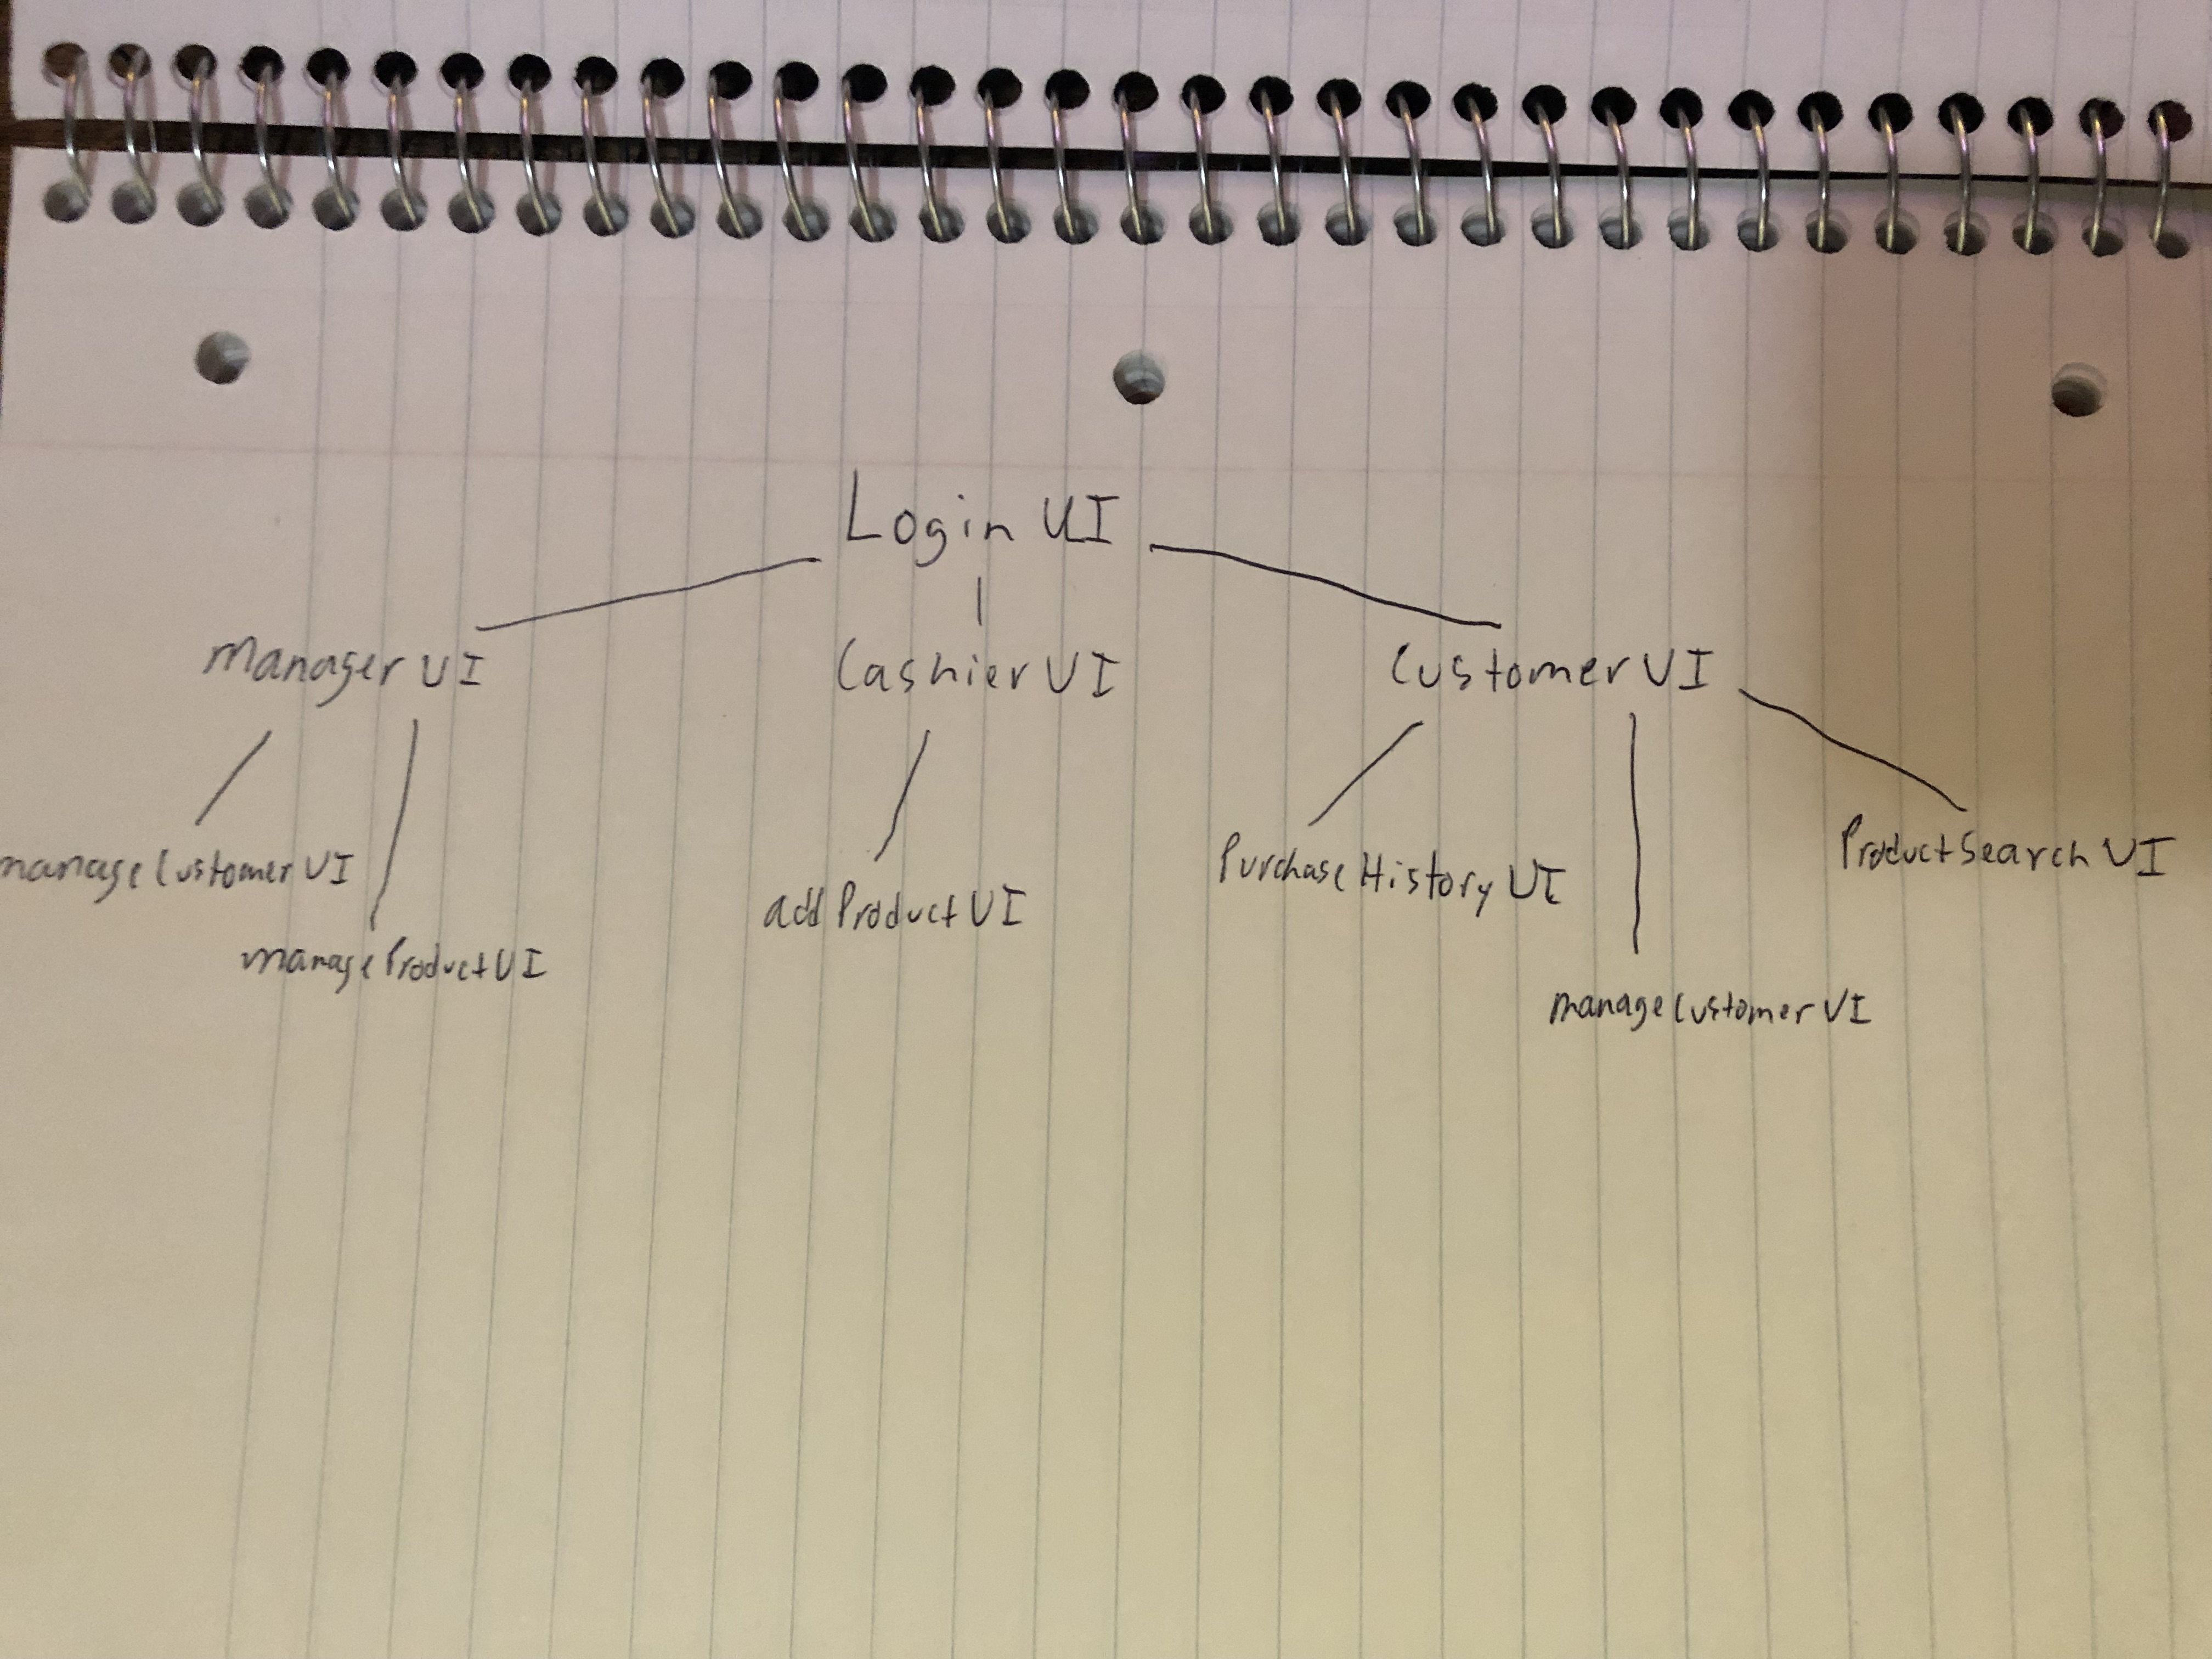 Login UI
Manager UI
Cashier UI
Customer UI
manageCustomerUI
manageProductUI
addProductUI
PurchaseHistoryUI
manageCustomerUI
ProductSearchUI